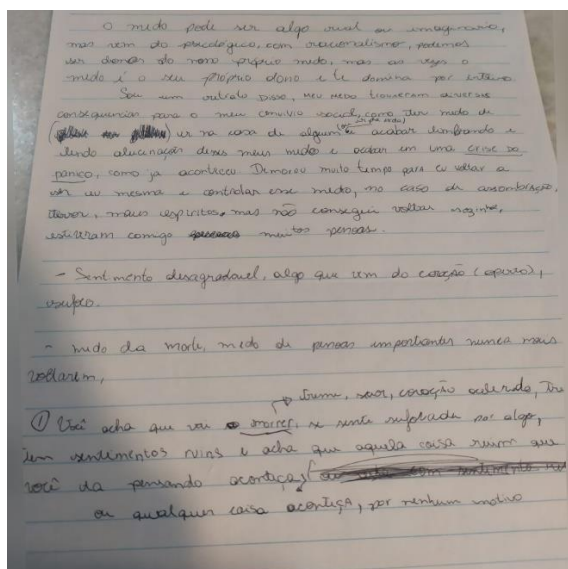 O medo pode ser algo real ou imaginario,
mas vem do psicológico, com racionalismo, podemos
ser donos do nosso próprio medo, mas as vezes o
medo é o seu próprio dono e te domina por inteiro
Sou um retrato disso, meu medo trouxeram diversas
consequências para o meu convívio social, como ter medo de
ir na casa de alguém acabar lembrando e
tendo alucinação desses meus medos e acabar em uma crise do
panico, como ja aconteceu Demorou muito tempo para eu voltar a
ser eu mesma e controlar esse medo, no caso de assombração,
maus espíritos, mas não consegui voltar sozinha,
estiveram comigo muitas pessoas.
- Sentimento desagradavel, algo que vem do coração (aperto),
- medo da morte, medo de pessoas importantes nunca mais
voltarem,
treme, suar, coração acelerado,
① Você acha que vai morrer, se sente sufocada por algo,
tem sentimentos ruins e acha que aquela coisa ruim que
você da pensando aconteça
ou qualquer coisa aconteça, por nenhum motivo